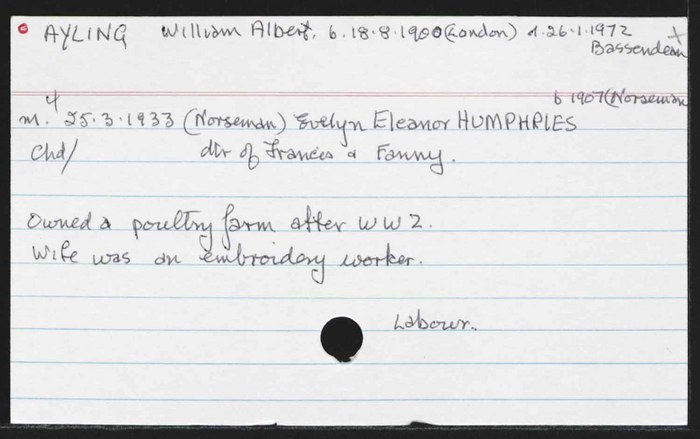 AYLING William Albert, b. 18.8.1900 (London) d. 26.1.1972
Bassendean
b 1907 (Norseman
m. 4 25.3.1933 (Norseman) Evelyn Eleanor HUMPHRIES
chd/ dtr of Francis & Fanny.
Owned a poultry farm after WW2.
Wife was an embroidery worker.
Labour.